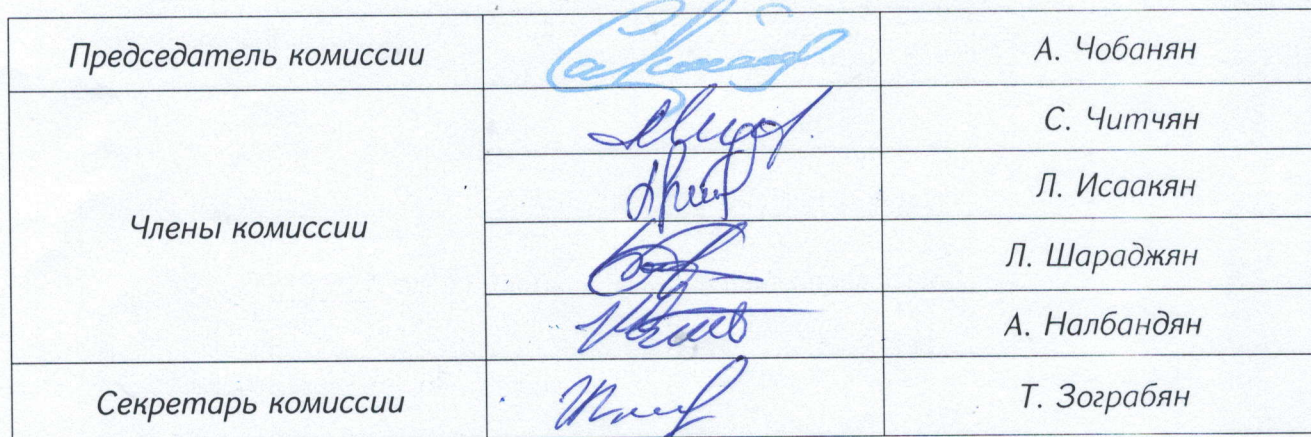 Председатель комиссии А. Чобанян
Члены комиссии С. Читчян
Л. Исаакян
Л. Шараджян
А. Налбандян
Секретарь комиссии Т. Зограбян